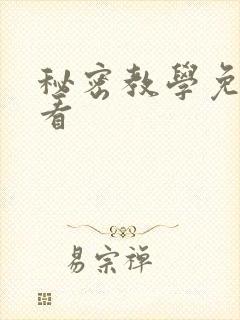 秘密教學免
看
易宗禪